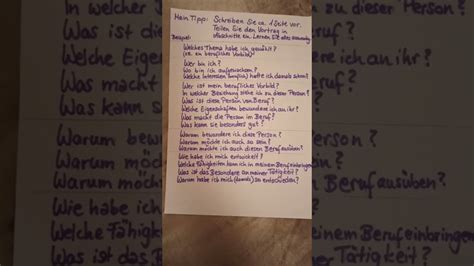 Mein Tipp: Schreiben Sie ca. 1 Seite vor.
Teilen Sie den Vortrag in
Abschnitte ein. Lernen Sie alles auswendig
Beispiel:
Welches Thema habe ich gewählt?
(ca. ein berufliches Vorbild)
Wer bin ich?
Wo bin ich aufgewachsen?
Welche Interessen (beruflich) hatte ich damals schon?
Wer ist mein berufliches Vorbild?
In welcher Beziehung stehe ich zu dieser Person?
Was ist diese Person von Beruf?
Welche Eigenschaften bewundere ich an ihr?
Was macht die Person im Beruf?
Was kann sie besonders gut?
Warum bewundere ich diese Person?
Warum möchte ich auch so sein?
Warum möchte ich auch diesen Beruf ausüben?
Wie habe ich mich entwickelt?
Welche Fähigkeiten kann ich in meinem Beruf einbringen
Was ist das Besondere an meiner Tätigkeit?
Warum habe ich mich (damals) so entschieden?
In welch
Was ist di
Welche Eigen
Was mach
Was kann s
Warum bewu
Warum möch
Warum möch
Wie habe ich
Welche Fähig
Was ist das
dieser Person?
ere ich an ihr?
Person?
Beruf ausüben?
meinem Beruf einbringe
Tätigkeit?